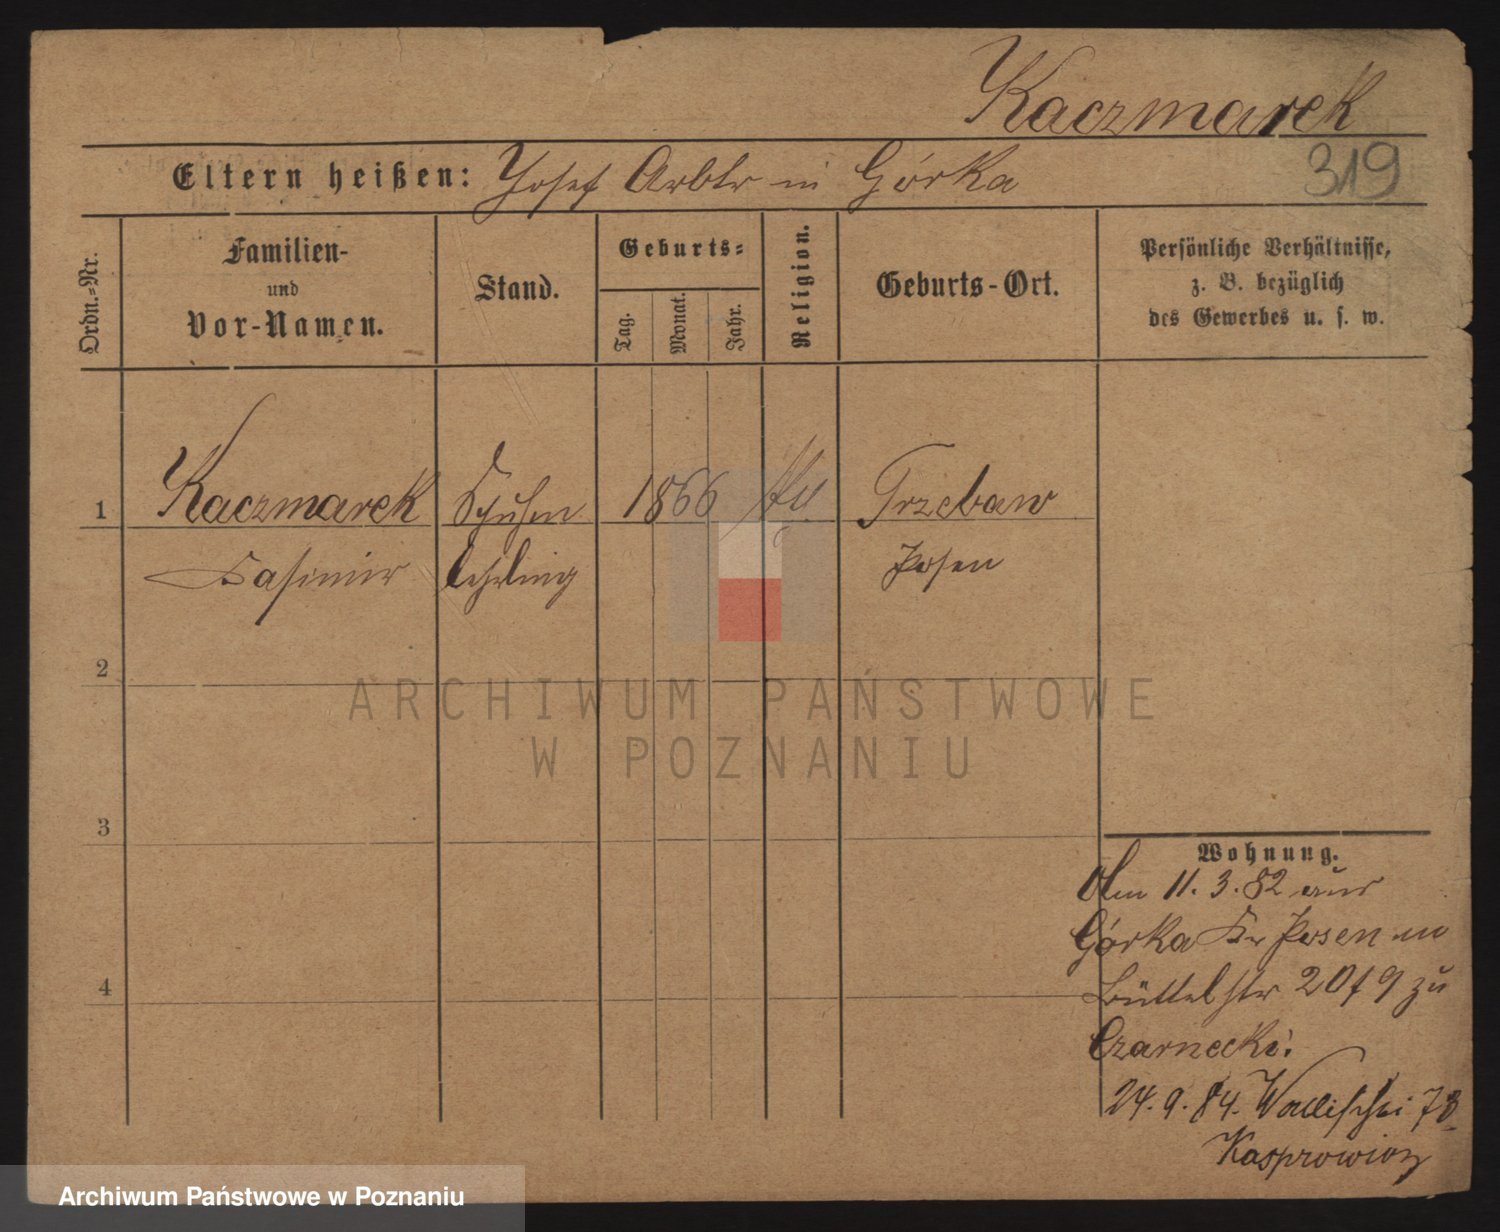 Kaczmarek
319
Eltern heißen: Josef Arbtr in Górka
Ordn.-Nr.
Familien-
und
Vor-Namen.
Stand.
Geburts-
Tag.
Monat.
Jahr.
Religion.
Geburts-Ort.
Persönliche Verhältnisse,
z. B. bezüglich
des Gewerbes u. s. w.
1 Kaczmarek Schuhm 1866 Trzebaw
Casimir lehrling Posen
2
3
4
ARCHIWUM PAŃSTWOWE
W POZNANIU
Wohnung.
Am 11.3.82 aus
Górka Kr Posen
Büttelstr 20 zu
Czarnecki.
24.9.84. Wallischei 73
Kasprowicz
Archiwum Państwowe w Poznaniu